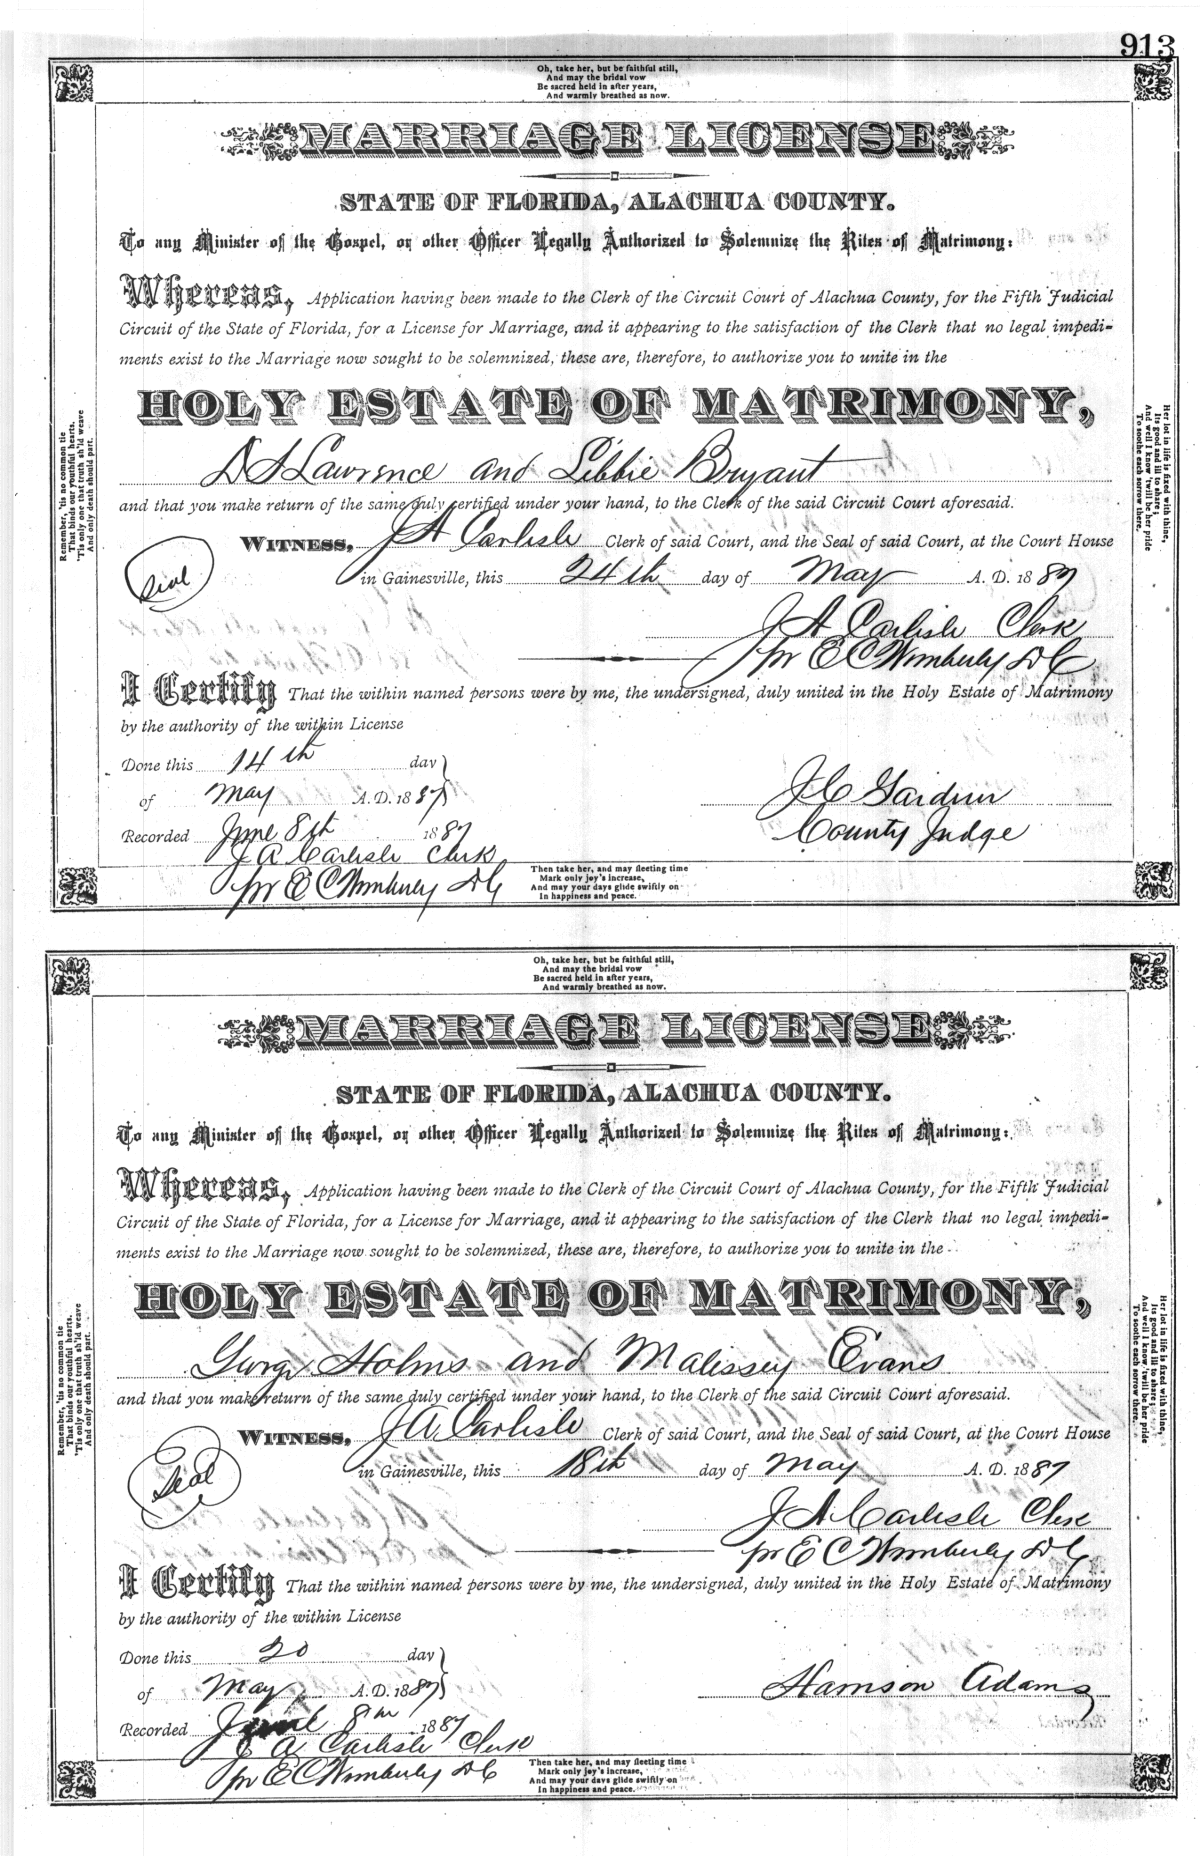 913
Oh, take her, but be faithful still,
And may the bridal vow
Be sacred held in after years,
And warmly breathed as now.
MARRIAGE LICENSE
STATE OF FLORIDA, ALACHUA COUNTY.
To any Minister of the Gospel, or other Officer Legally Authorized to Solemnize the Rites of Matrimony:
Whereas, Application having been made to the Clerk of the Circuit Court of Alachua County, for the Fifth Judicial
Circuit of the State of Florida, for a License for Marriage, and it appearing to the satisfaction of the Clerk that no legal impedi-
ments exist to the Marriage now sought to be solemnized, these are, therefore, to authorize you to unite in the
HOLY ESTATE OF MATRIMONY,
D S Lawrence and Libbie Bryant
and that you make return of the same duly certified under your hand, to the Clerk of the said Circuit Court aforesaid.
WITNESS, J A Carlisle Clerk of said Court, and the Seal of said Court, at the Court House
Seal
in Gainesville, this 24th day of May A. D. 1887
J A Carlisle Clerk
pr E C Wimberly D C
I Certify That the within named persons were by me, the undersigned, duly united in the Holy Estate of Matrimony
by the authority of the within License
Done this 14th day
of May A. D. 1887
J C Gardner
County Judge
Recorded June 8th 1887
J A Carlisle Clerk
pr E C Wimberly D C
Remember, 'tis no common tie
That binds our youthful hearts,
'Tis only one that truth sh'ld weave
And only death should part.
Her lot in life is fixed with thine,
Its good and ill to share;
And well I know 'twill be her pride
To soothe each sorrow there.
Then take her, and may fleeting time
Mark only joy's increase,
And may your days glide swiftly on
In happiness and peace.
Oh, take her, but be faithful still,
And may the bridal vow
Be sacred held in after years,
And warmly breathed as now.
MARRIAGE LICENSE
STATE OF FLORIDA, ALACHUA COUNTY.
To any Minister of the Gospel, or other Officer Legally Authorized to Solemnize the Rites of Matrimony:
Whereas, Application having been made to the Clerk of the Circuit Court of Alachua County, for the Fifth Judicial
Circuit of the State of Florida, for a License for Marriage, and it appearing to the satisfaction of the Clerk that no legal impedi-
ments exist to the Marriage now sought to be solemnized, these are, therefore, to authorize you to unite in the
HOLY ESTATE OF MATRIMONY,
Gorge Holms and Malissey Evans
and that you make return of the same duly certified under your hand, to the Clerk of the said Circuit Court aforesaid.
WITNESS, J A Carlisle Clerk of said Court, and the Seal of said Court, at the Court House
Seal
in Gainesville, this 18th day of May A. D. 1887
J A Carlisle Clerk
pr E C Wimberly D C
I Certify That the within named persons were by me, the undersigned, duly united in the Holy Estate of Matrimony
by the authority of the within License
Done this 20 day
of May A. D. 1887
Harrison Adams
Recorded 8th 1887
J A Carlisle Clerk
pr E C Wimberly D C
Remember, 'tis no common tie
That binds our youthful hearts,
'Tis only one that truth sh'ld weave
And only death should part.
Her lot in life is fixed with thine,
Its good and ill to share;
And well I know 'twill be her pride
To soothe each sorrow there.
Then take her, and may fleeting time
Mark only joy's increase,
And may your days glide swiftly on
In happiness and peace.